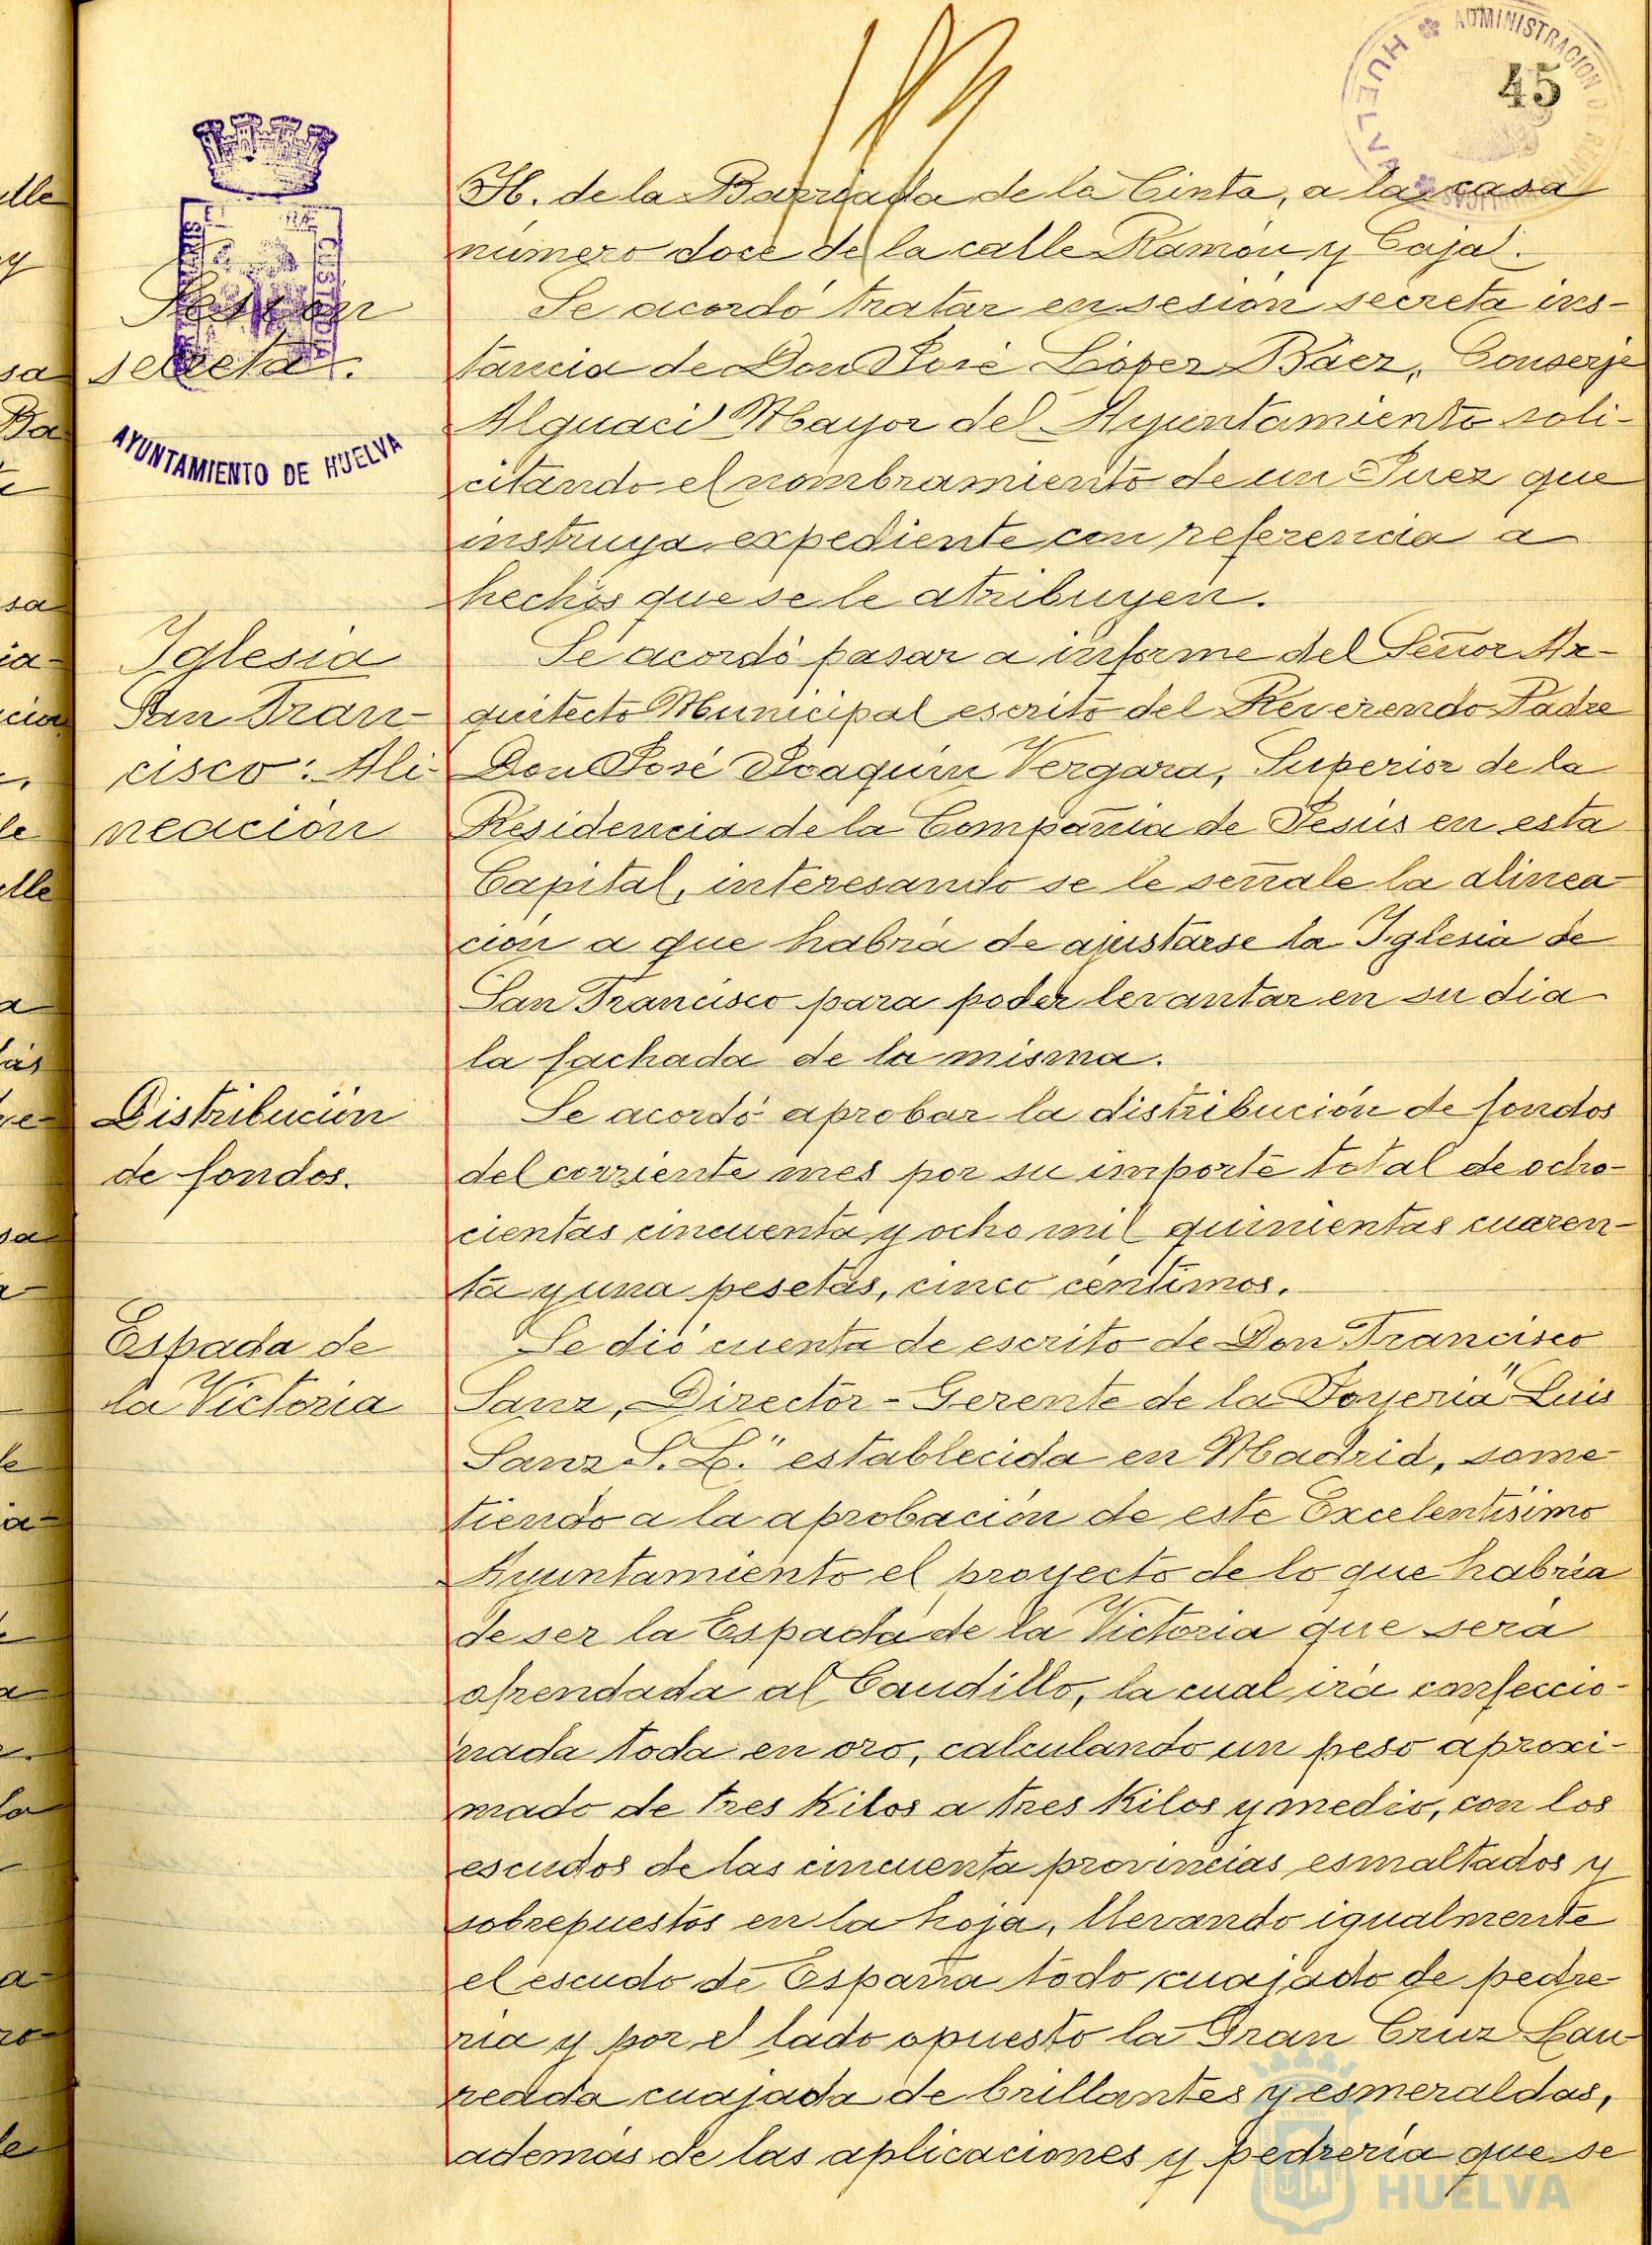 45
ADMINISTRACION DE RENTAS PUBLICAS
HUELVA
H. de la Barriada de la Cinta, a la casa
número doce de la calle Ramón y Cajal.
Sesión
secreta.
AYUNTAMIENTO DE HUELVA
Se acordó tratar en sesión secreta ins-
tancia de Don José López Báez, Conserje
Alguacil Mayor del Ayuntamiento soli-
citando el nombramiento de un Juez que
instruya expediente con referencia a
hechos que se le atribuyen.
Iglesia
San Fran-
cisco: Ali-
neación
Se acordó pasar a informe del Señor Ar-
quitecto Municipal escrito del Reverendo Padre
Don José Joaquín Vergara, Superior de la
Residencia de la Compañía de Jesús en esta
Capital, interesando se le señale la alinea-
ción a que habrá de ajustarse la Iglesia de
San Francisco para poder levantar en su dia
la fachada de la misma.
Distribución
de fondos.
Se acordó aprobar la distribución de fondos
del corriente mes por su importe total de ocho-
cientas cincuenta y ocho mil quinientas cuaren-
ta y una pesetas, cinco céntimos.
Espada de
la Victoria
Se dió cuenta de escrito de Don Francisco
Sanz, Director-Gerente de la Joyería "Luis
Sanz S. L." establecida en Madrid, some-
tiendo a la aprobación de este Excelentísimo
Ayuntamiento el proyecto de lo que habría
de ser la Espada de la Victoria que será
ofrendada al Caudillo, la cual irá confeccio-
nada toda en oro, calculando un peso aproxi-
mado de tres kilos a tres kilos y medio, con los
escudos de las cincuenta provincias esmaltados y
sobrepuestos en la hoja, llevando igualmente
el escudo de España todo cuajado de pedre-
ría y por el lado opuesto la Gran Cruz Lau-
reada cuajada de brillantes y esmeraldas,
además de las aplicaciones y pedrería que se
HUELVA